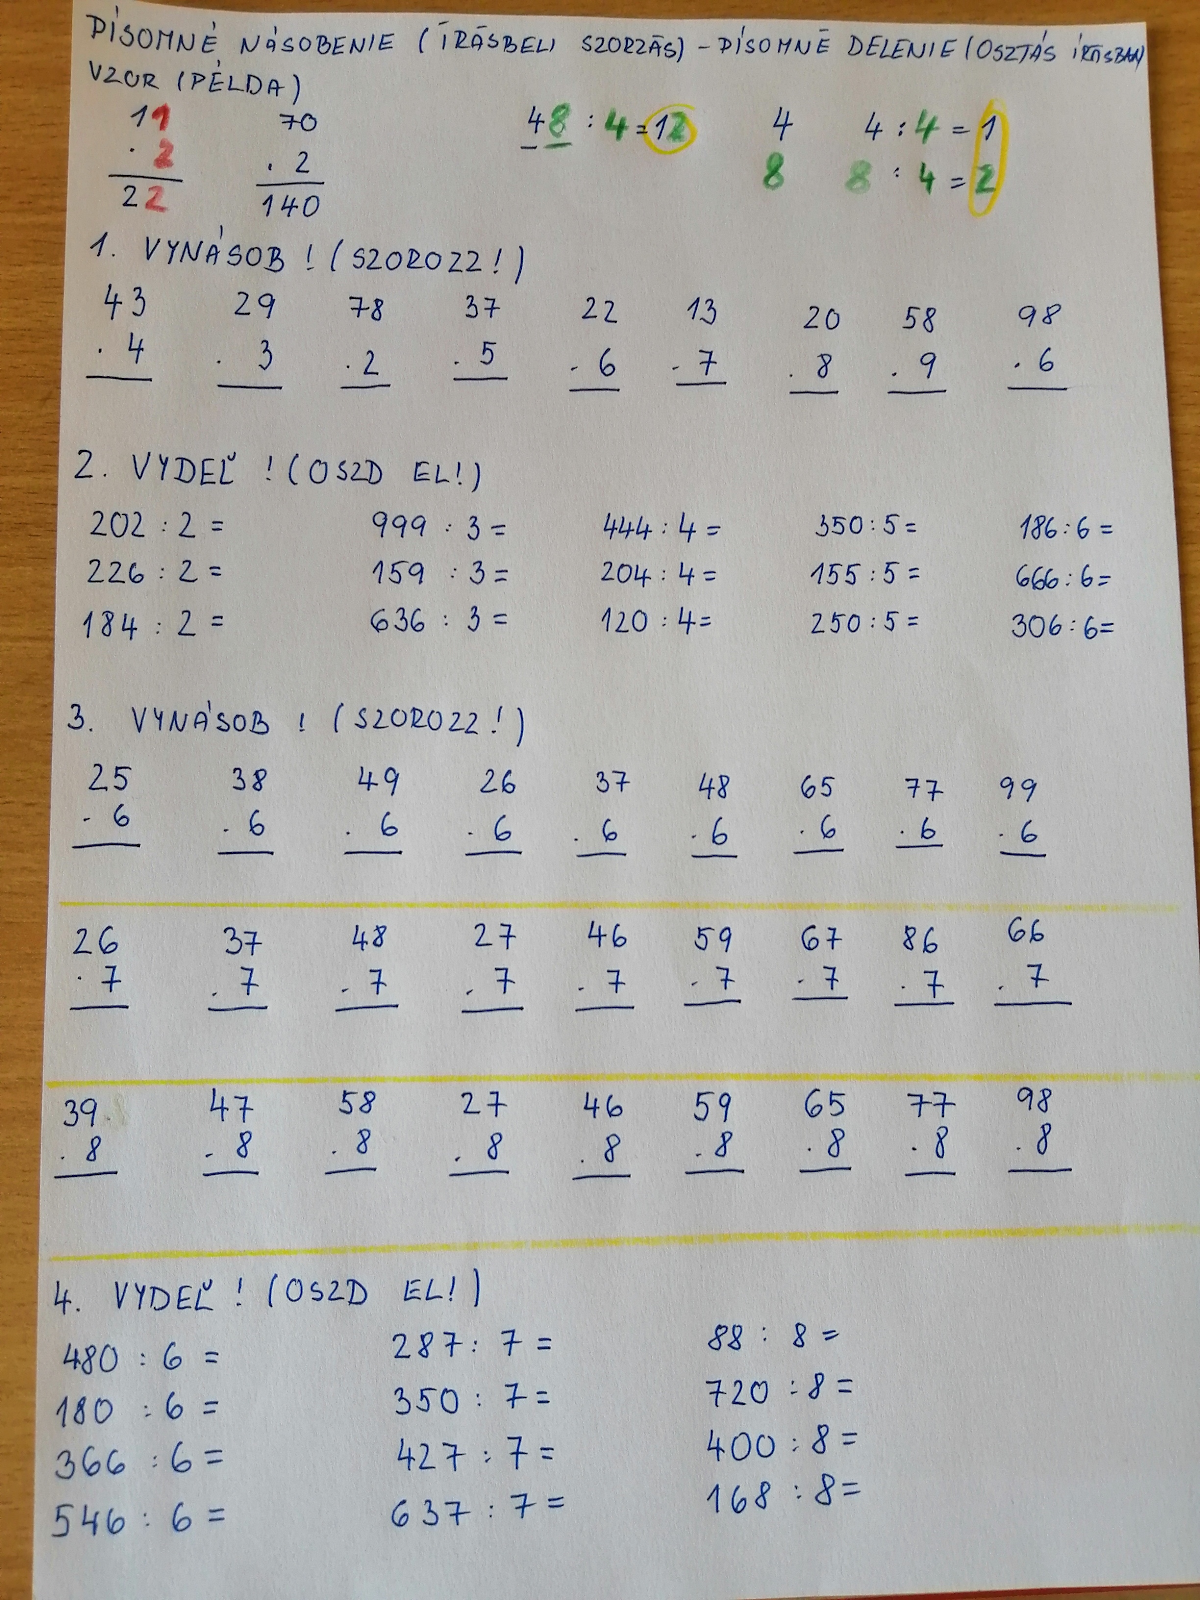 PÍSOMNÉ NÁSOBENIE (ÍRÁSBELI SZORZÁS) - PÍSOMNÉ DELENIE (OSZTÁS ÍRÁSBAN)
VZOR (PÉLDA)
11 70 48 : 4 = 12 4 4 : 4 = 1
. 2 . 2 8 8 : 4 = 2
22 140
1. VYNÁSOB ! (SZOROZZ!)
43 29 78 37 22 13 20 58 98
. 4 . 3 . 2 . 5 . 6 . 7 . 8 . 9 . 6
2. VYDEĽ ! (OSZD EL!)
202 : 2 = 999 : 3 = 444 : 4 = 350 : 5 = 186 : 6 =
226 : 2 = 159 : 3 = 204 : 4 = 155 : 5 = 666 : 6 =
184 : 2 = 636 : 3 = 120 : 4 = 250 : 5 = 306 : 6 =
3. VYNÁSOB ! (SZOROZZ!)
25 38 49 26 37 48 65 77 99
. 6 . 6 . 6 . 6 . 6 . 6 . 6 . 6 . 6
26 37 48 27 46 59 67 86 66
. 7 . 7 . 7 . 7 . 7 . 7 . 7 . 7 . 7
39 47 58 27 46 59 65 77 98
. 8 . 8 . 8 . 8 . 8 . 8 . 8 . 8 . 8
4. VYDEĽ ! (OSZD EL!)
480 : 6 = 287 : 7 = 88 : 8 =
180 : 6 = 350 : 7 = 720 : 8 =
366 : 6 = 427 : 7 = 400 : 8 =
546 : 6 = 637 : 7 = 168 : 8 =